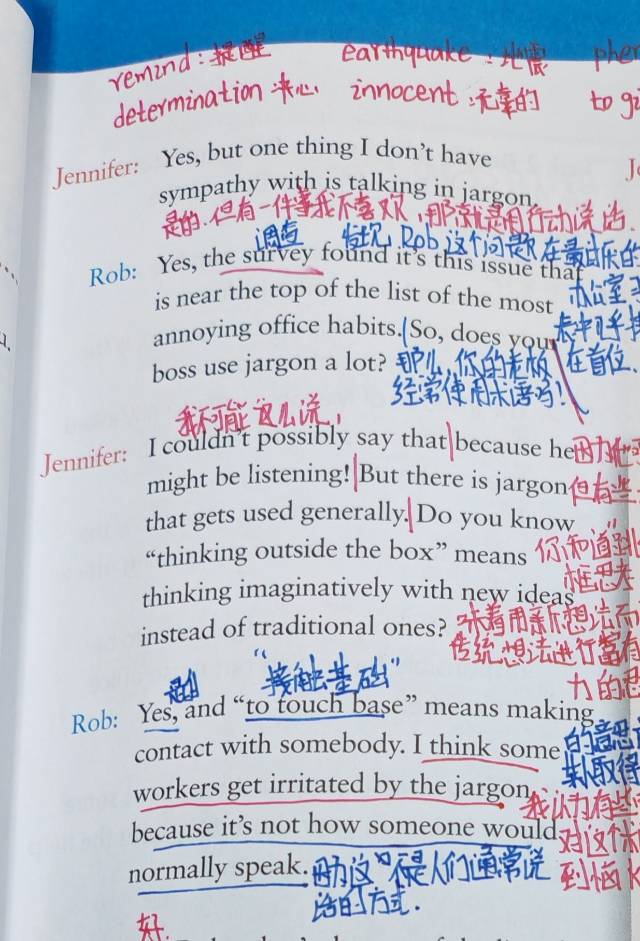 remind:提醒 earthquake:地震
determination 决心 innocent:无辜的 to
Jennifer: Yes, but one thing I don't have
sympathy with is talking in jargon.
是的.但有一件事我不喜欢,那就是用行动说话.
调查 发现, Rob这个问题在最讨厌的
Rob: Yes, the survey found it's this issue that
is near the top of the list of the most
办公室
annoying office habits. So, does your
boss use jargon a lot? 那么,你的老板 在首位.
经常使用术语吗?
我不可能这么说,
Jennifer: I couldn't possibly say that because he 因为他
might be listening! But there is jargon 但有些
that gets used generally. Do you know
“thinking outside the box” means 你知道"跳
框思考
thinking imaginatively with new ideas
instead of traditional ones? 味着用新的想法而
传统想法进行富有
力的思
是的 "接触基础"
Rob: Yes, and “to touch base” means making
contact with somebody. I think some 的意思
workers get irritated by the jargon 人取得
我认为有些
because it's not how someone would 对这个术
normally speak. 因为这"不是人们通常说 到恼
话的方式.
好.